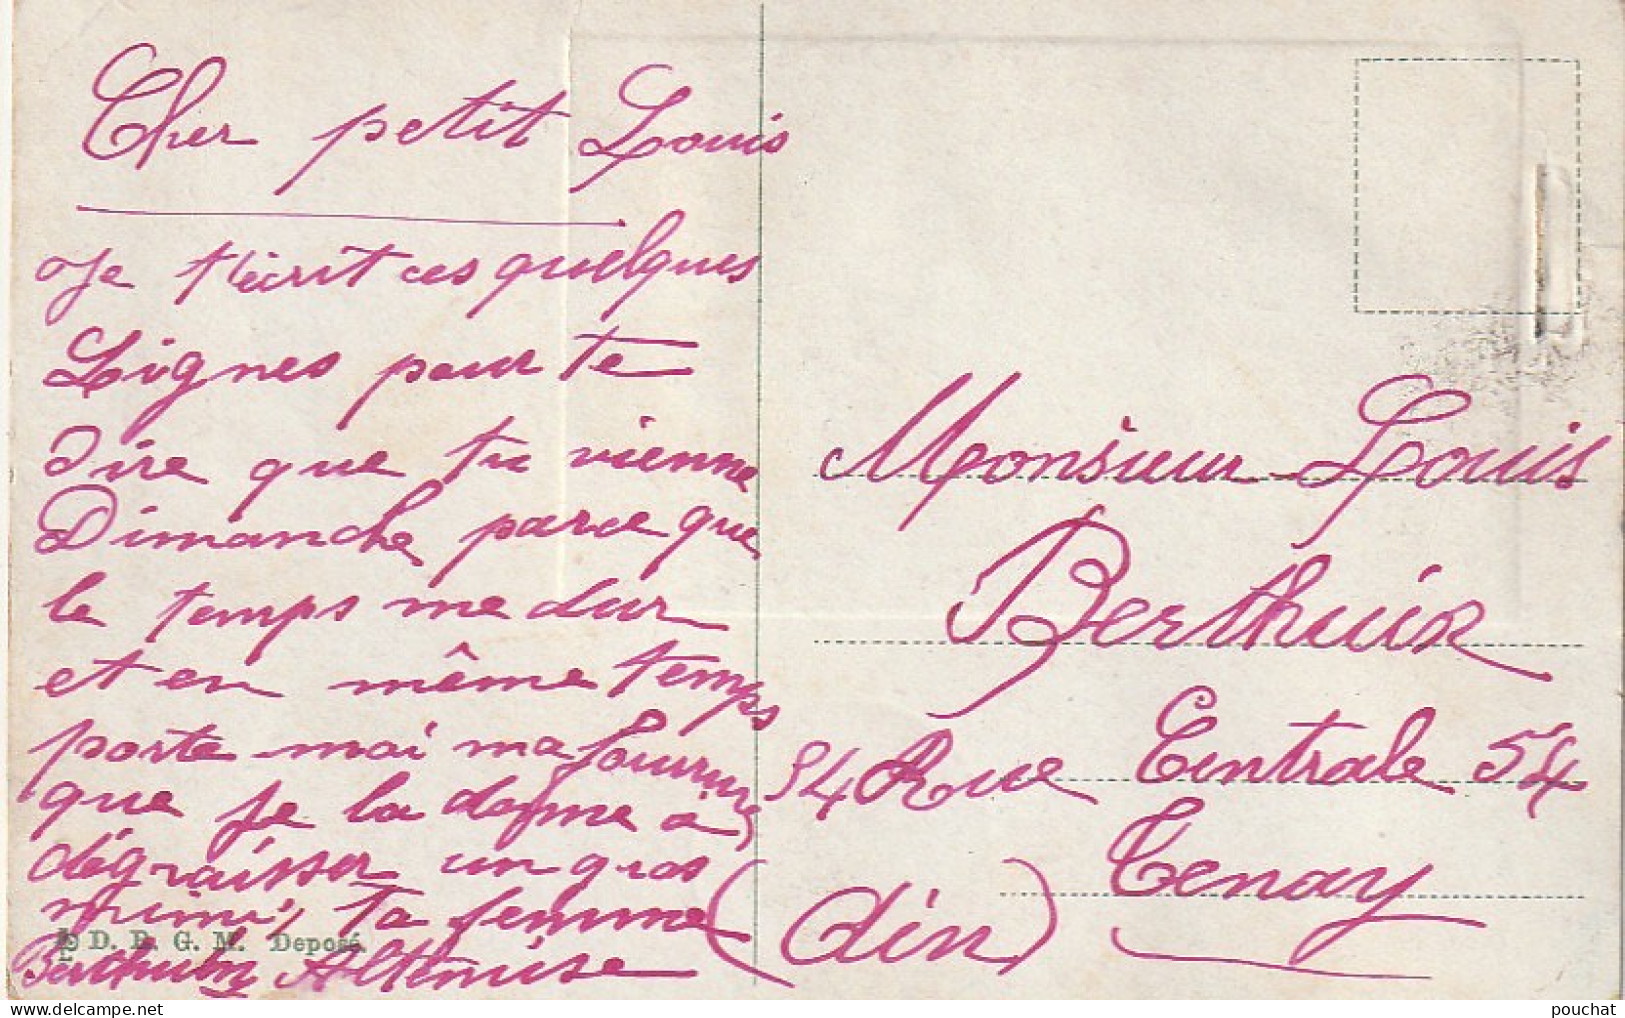 Cher petit Louis
Je t'écrit ces quelques
Lignes pour te
dire que tu vienne
Dimanche parce que
le temps me dur
et en même temps
porte moi ma fourrure
que je la donne à
dégraisser un gros
mimi, ta femme
Altémise
D. R. G. M. Deposé.
Monsieur Louis
Berthuin
54 Rue Centrale 54
Tenay
(Ain)
pouchat